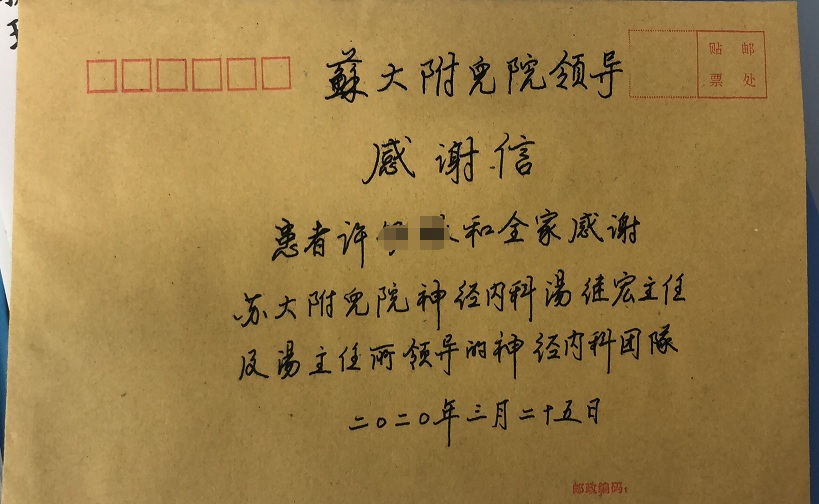 蘇大附兒院领导
贴 邮
票 处
感谢信
患者许 和全家感谢
苏大附兒院神经内科湯继宏主任
及湯主任所领导的神经内科团隊
二〇二〇年三月二十五日
邮政编码: